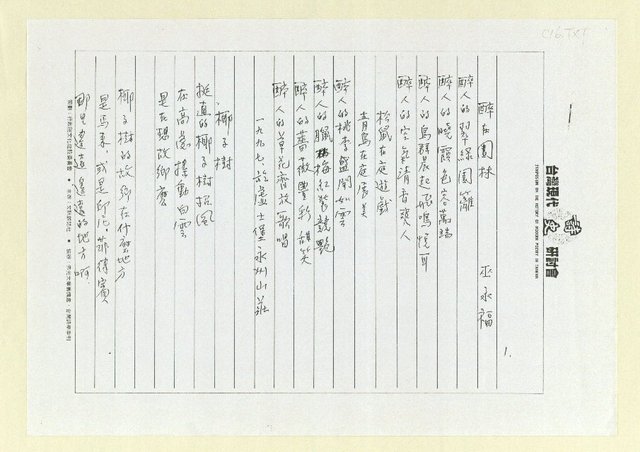 C16.TXT
台灣現代詩史研討會
SYMPOSIUM ON THE HISTORY OF MODERN POETRY IN TAIWAN
1.
醉在園林
巫永福
醉人的翠綠園籬
醉人的曉霞色容萬端
醉人的鳥群晨起婉鳴悅耳
醉人的空氣清香爽人
松鼠在庭遊戲
青鳥在庭展美
醉人的桃李盛開如雲
醉人的臘梅紅裝競艷
醉人的薔薇豐彩甜笑
醉人的草花齊放歌唱
一九九七、於霧士堡永州山莊
椰子樹
挺直的椰子樹招風
在高處搖動白雲
是在想故鄉麼
椰子樹的故鄉在什麼地方
是馬來或是印尼、菲律賓
那是遠遠遙遠的地方呀